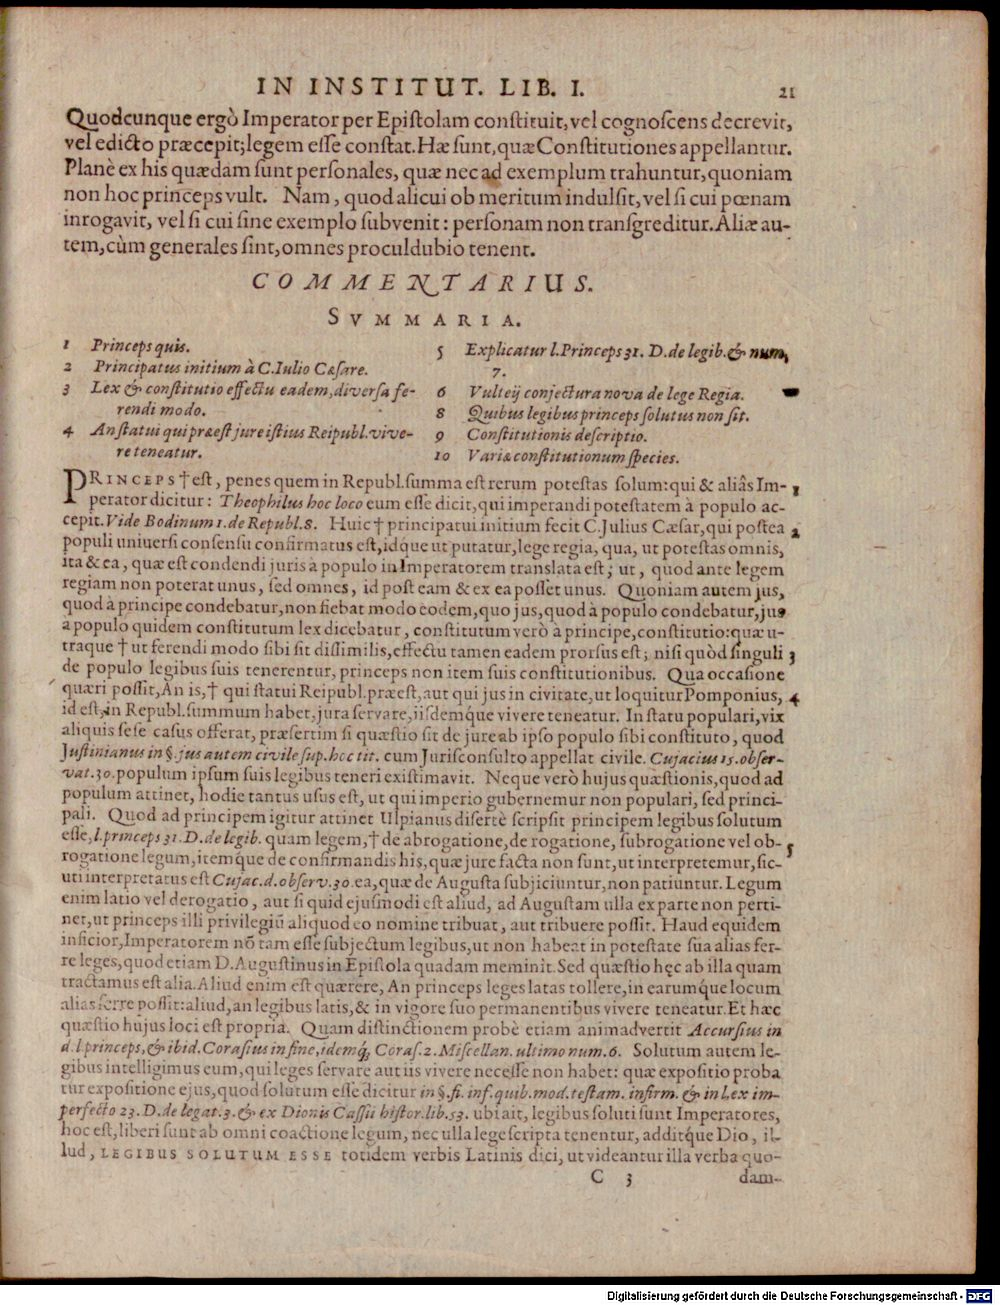 IN INSTITUT. LIB. I. 21
Quodcunque ergò Imperator per Epistolam constituit, vel cognoscens decrevit,
vel edicto præcepit; legem esse constat. Hæ sunt, quæ Constitutiones appellantur.
Planè ex his quædam sunt personales, quæ nec ad exemplum trahuntur, quoniam
non hoc princeps vult. Nam, quod alicui ob meritum indulsit, vel si cui pœnam
inrogavit, vel si cui sine exemplo subvenit: personam non transgreditur. Aliæ au-
tem, cùm generales sint, omnes proculdubio tenent.
COMMENTARIUS.
SVMMARIA.
1 Princeps quis.
2 Principatus initium à C. Iulio Cæsare.
3 Lex & constitutio effectu eadem, diversa fe-
rendi modo.
4 An statui qui præest jure istius Reipubl. vive-
re teneatur.
5 Explicatur l. Princeps 31. D. de legib. & num.
7.
6 Vulteij conjectura nova de lege Regia.
8 Quibus legibus princeps solutus non sit.
9 Constitutionis descriptio.
10 Variæ constitutionum species.
PRINCEPS † est, penes quem in Republ. summa est rerum potestas solum: qui & aliâs Im- 1
perator dicitur: Theophilus hoc loco eum esse dicit, qui imperandi potestatem à populo ac-
cepit. Vide Bodinum 1. de Republ. 8. Huic † principatui initium fecit C. Julius Cæsar, qui postea 2
populi universi consensu confirmatus est, idque ut putatur, lege regia, qua, ut potestas omnis,
ita & ea, quæ est condendi juris à populo in Imperatorem translata est; ut, quod ante legem
regiam non poterat unus, sed omnes, id post eam & ex ea posset unus. Quoniam autem jus,
quod à principe condebatur, non fiebat modo eodem, quo jus, quod à populo condebatur, jus
à populo quidem constitutum lex dicebatur, constitutum verò à principe, constitutio: quæ u-
traque † ut ferendi modo sibi sit dissimilis, effectu tamen eadem prorsus est; nisi quòd singuli 3
de populo legibus suis tenerentur, princeps non item suis constitutionibus. Qua occasione
quæri possit, An is, † qui statui Reipubl. præest, aut qui jus in civitate, ut loquitur Pomponius, 4
id est, in Republ. summum habet, jura servare, iisdemque vivere teneatur. In statu populari, vix
aliquis sese casus offerat, præsertim si quæstio sit de jure ab ipso populo sibi constituto, quod
Justinianus in §. jus autem civile sup. hoc tit. cum Jurisconsulto appellat civile. Cujacius 15. obser-
vat. 30. populum ipsum suis legibus teneri existimavit. Neque verò hujus quæstionis, quod ad
populum attinet, hodie tantus usus est, ut qui imperio gubernemur non populari, sed princi-
pali. Quod ad principem igitur attinet Ulpianus disertè scripsit principem legibus solutum
esse, l. princeps 31. D. de legib. quam legem, † de abrogatione, de rogatione, subrogatione vel ob- 5
rogatione legum, itemque de confirmandis his, quæ jure facta non sunt, ut interpretemur, sic-
uti interpretatus est Cujac. d. observ. 30. ea, quæ de Augusta subjiciuntur, non patiuntur. Legum
enim latio vel derogatio, aut si quid ejusmodi est aliud, ad Augustam ulla ex parte non perti-
net, ut princeps illi privilegiū aliquod eo nomine tribuat, aut tribuere possit. Haud equidem
inficior, Imperatorem nō tam esse subjectum legibus, ut non habeat in potestate sua alias fer-
re leges, quod etiam D. Augustinus in Epistola quadam meminit. Sed quæstio hęc ab illa quam
tractamus est alia. Aliud enim est quærere, An princeps leges latas tollere, in earumque locum
alias ferre possit: aliud, an legibus latis, & in vigore suo permanentibus vivere teneatur. Et hæc
quæstio hujus loci est propria. Quam distinctionem probè etiam animadvertit Accursius in
d. l. princeps, & ibid. Corasius in fine, idemq́; Coras. 2. Miscellan. ultimo num. 6. Solutum autem le-
gibus intelligimus eum, qui leges servare aut iis vivere necesse non habet: quæ expositio proba
tur expositione ejus, quod solutum esse dicitur in §. fi. inf. quib. mod. testam. infirm. & in l. ex im-
perfecto 23. D. de legat. 3. & ex Dionis Cassii histor. lib. 53. ubi ait, legibus soluti sunt Imperatores,
hoc est, liberi sunt ab omni coactione legum, nec ulla lege scripta tenentur, additque Dio, il-
lud, LEGIBUS SOLUTUM ESSE totidem verbis Latinis dici, ut videantur illa verba quo-
C 3 dam-
Digitalisierung gefördert durch die Deutsche Forschungsgemeinschaft - DFG